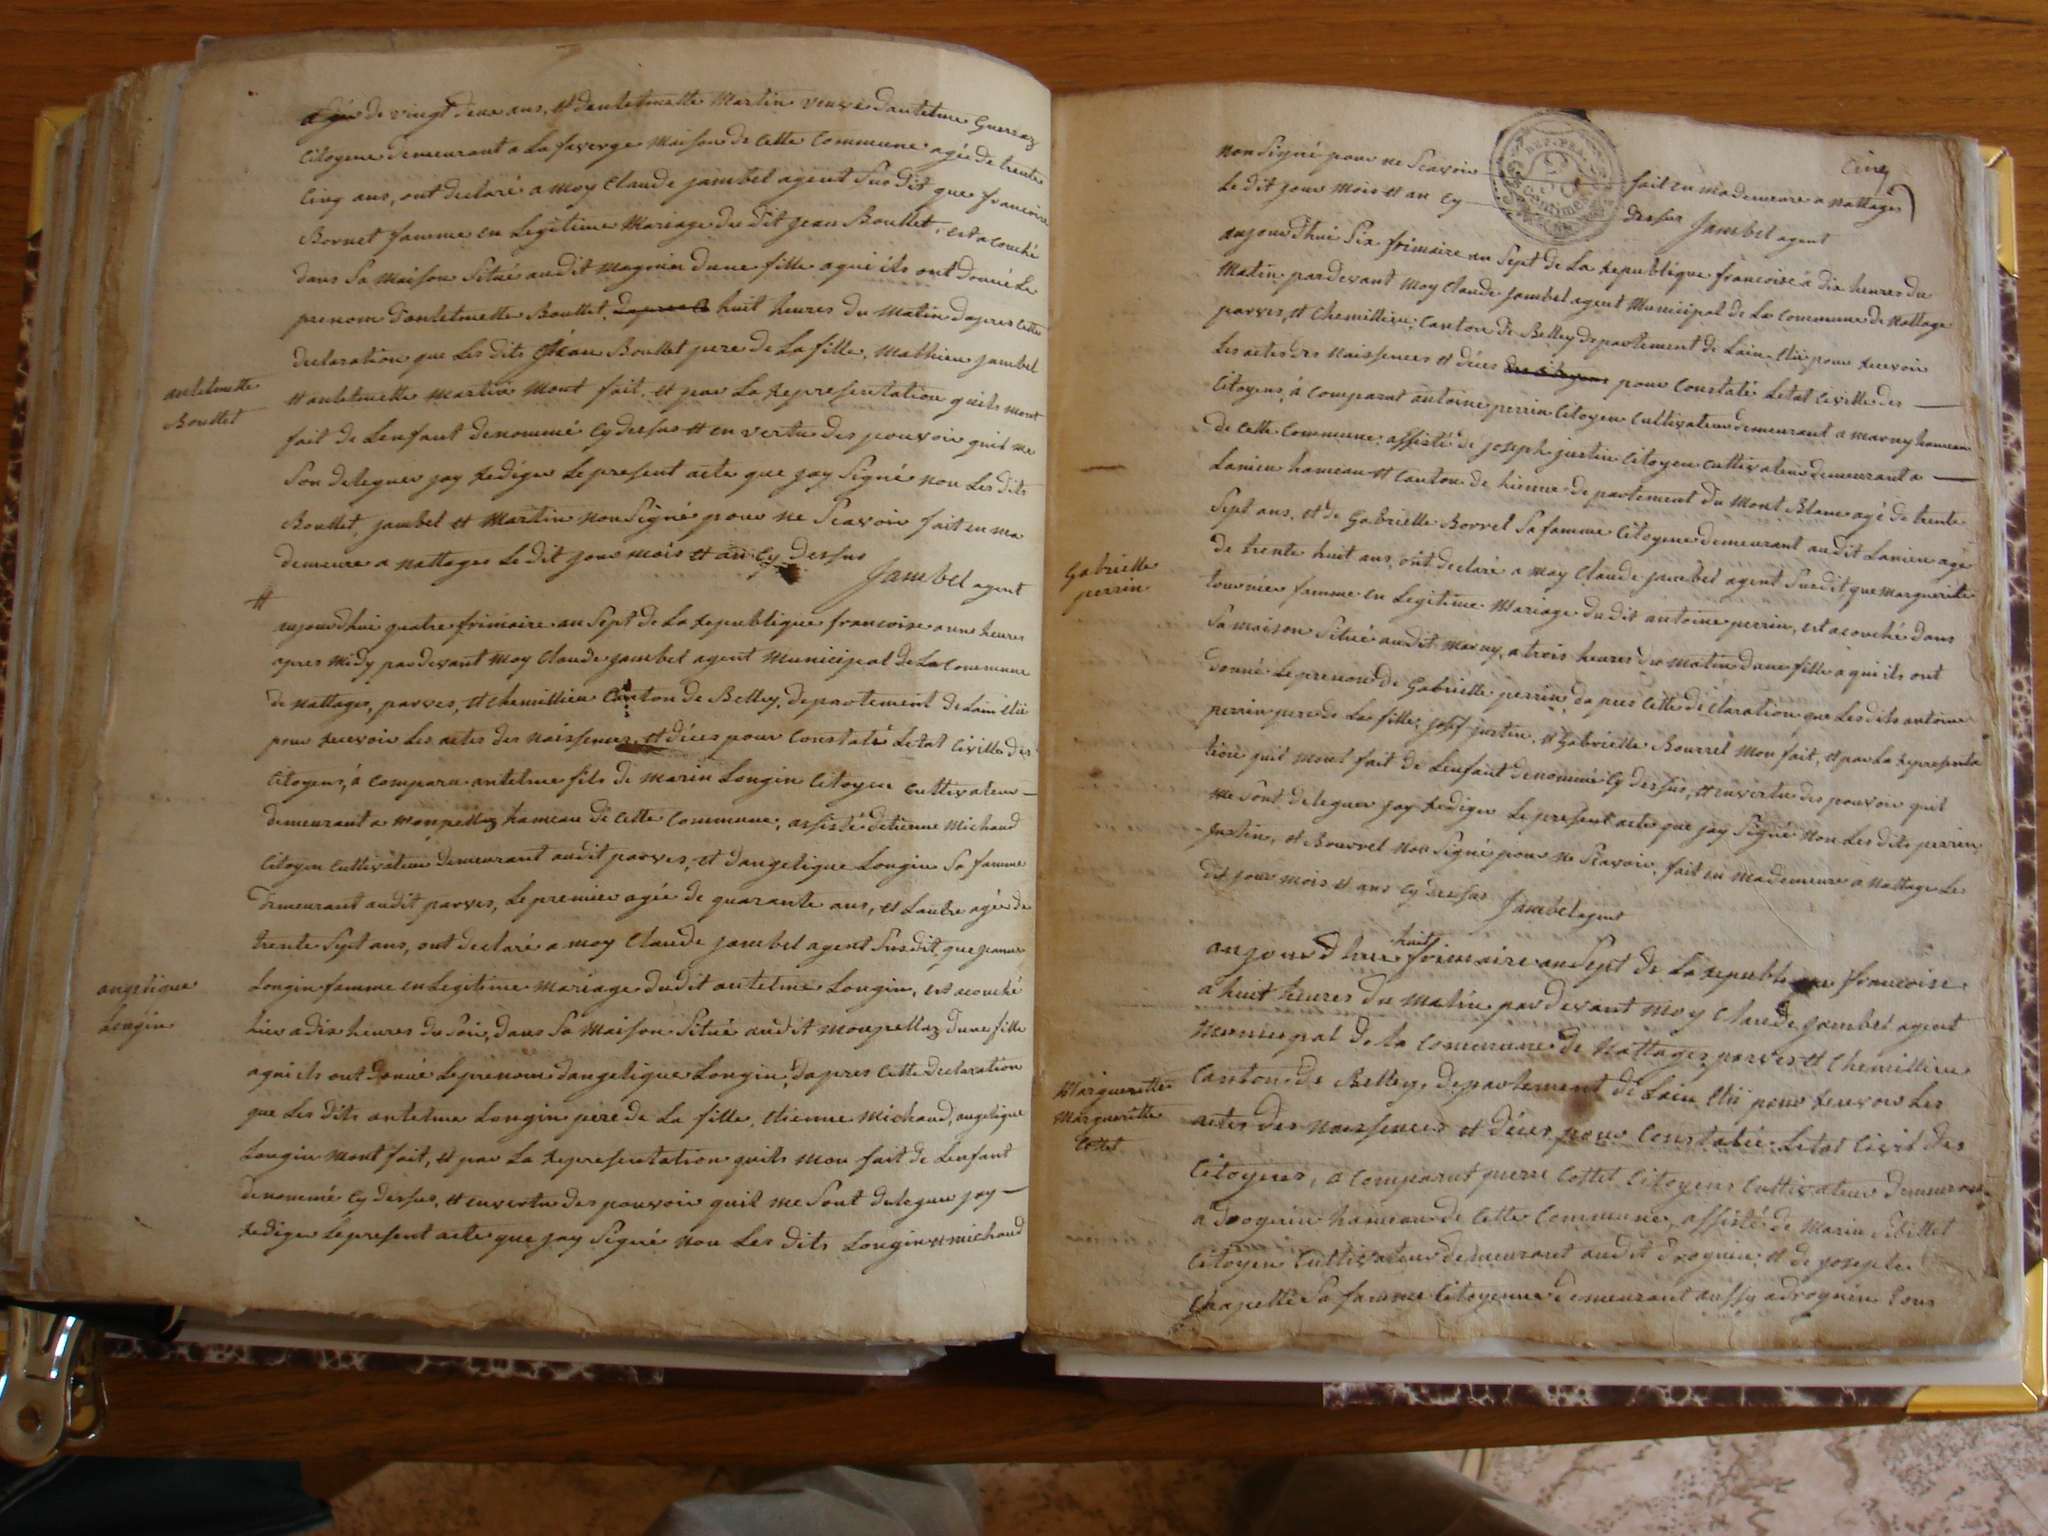 agée de vingt deux ans, et dentelmette Martin veuve dantelme Guerraz
Citoyene demeurant a La faverge maison de Cette Commune agée de trente
Cinq ans, ont declaré a moy Claude jambel agent Susdit que francoise
Bornet famme en Legitime Mariage du dit jean Boullet, est acouché
dans Sa maison Situé audit magnin dune fille a qui ils ont donné Le
prenom dantelmette Boullet, huit heures du matin dapres cette
declaration que Les dits jean Boullet pere de La fille, Mathieu jambel
antelmette
Boullet
et antelmette martin mont fait, et par La Representation quils mont
fait de Lenfant denommé Cy dessus et en vertu des pouvoir quil me
Son deleguer jay Rediger Le present acte que jay Signé non Les dits
Boullet, jambel et Martin non Signé pour ne Scavoir fait en ma
demeure a nattages Le dit jour mois et an Cy dessus
Jambel agent
aujourdhui quatre frimaire an Sept de La Republique francoise a une heures
apres midy pardevant moy Claude jambel agent municipal de La Commune
de nattages, parves, et Chemillieu Canton de Belley, departement de Lain Elü
pour Recevoir Les actes des naissences et déces pour Constaté Letat Civille des
Citoyens, à Comparu antelme fils de marin Longin Citoyen Cultivateur
demeurant a monpellaz hameau de Cette Commune, assisté detienne Michaud
Citoyen Cultivateur demeurant audit parves, et dangelique Longin Sa famme
Demeurant audit parves, Le premier agée de quarante ans, et Lautre agée de
trente Sept ans, ont declaré a moy Claude jambel agent Susdit, que
angelique
Longin
Longin famme en Legitime mariage dudit antelme Longin, est acouché
hier a dix heures du Soir, dans Sa Maison Situé audit monpellaz dune fille
a qui ils ont donné Le prenom dangelique Longin, dapres Cette declaration
que Les dits antelme Longin pere de La fille, Etienne Michaud, angelique
Longin mont fait, et par La Representation quils mon fait de Lenfant
denommé Cy dessus, et en vertu des pouvoir quil me Sont deleguer jay
Rediger Le present acte que jay Signé non Les dits Longin et michaud
Cinq
REP. FRA.
Centimes
non Signé pour ne Scavoir fait en ma demeure a nattages
Le dit jour mois et an Cy dessus Jambel agent
aujourdhui Six frimaire an Sept de La Republique francoise à dix heures du
Matin, pardevant Moy Claude jambel agent Municipal de La Commune de Nattage
parves, et Chemillieu, Canton de Belley departement de Lain, Elü pour Recevoir
Les actes des Naissences et déces des Citoyens pour Constaté Letat Civille des
Citoyens, à Comparut antoine perrin Citoyen Cultivateur demeurant a marny hameau
de Cette Commune, assisté de joseph justin Citoyen Cultivateur demeurant a
Lanieu hameau et Canton de hienne departement du Mont Blanc agé de trente
Sept ans, et de Gabrielle Borrel Sa famme Citoyene demeurant audit Lanieu agé
Gabrielle
perrin
de trente huit ans, ont declaré a moy Claude jambel agent Susdit, que Marguerite
tournier famme en Legitime Mariage dudit antoine perrin, est acouché dans
Sa maison Situé audit marny, a trois heures du Matin dune fille a qui ils ont
donné Le prenom de Gabrielle perrin, dapres Cette declaration que Les dits antoine
perrin pere de La fille, josef justin, et Gabrielle Bourrel mon fait, et par La Representa
tion quil mont fait de Lenfant denommé Cy dessus, et en vertu des pouvoir quil
me Sont deleguer jay Rediger Le present acte que jay Signé non Les dits perrin,
justin, et Bourrel non Signé pour ne Scavoir, fait en ma demeure a nattage Le
dit jour mois et ans Cy dessus Jambel agent
aujourdhui huit frimaire an Sept de La republique francoise
a huit heures du matin pardevant moy Claude jambel agent
Municipal de la Commune de Nattages parves et Chemillieu
Margueritte
Margueritte
Cottet
Canton de Belley, departement de Lain Elü pour Recevoir Les
actes des naissences et déces pour Constatée Letat Civil des
Citoyens, a Comparut pierre Cottet Citoyens Cultivateur demeurant
a Srognin hameau de Cette Commune, assisté de Marin Sibillet
Citoyen Cultivateur demeurant audit Srognin, et de josepte
Chapelle Sa famme Citoyenne demeurant aussy a Srognin tous